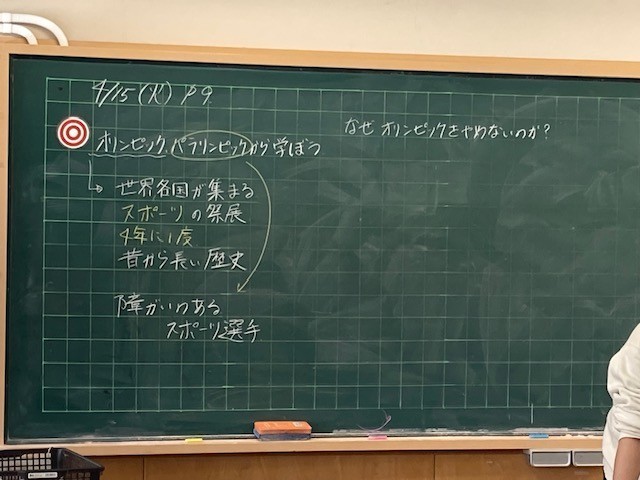 4/15(火) P9.
オリンピック、パラリンピックから学ぼう
世界各国が集まる
スポーツの祭展
4年に1度
昔から長い歴史
障がいのある
スポーツ選手
なぜオリンピックをやめないのか?